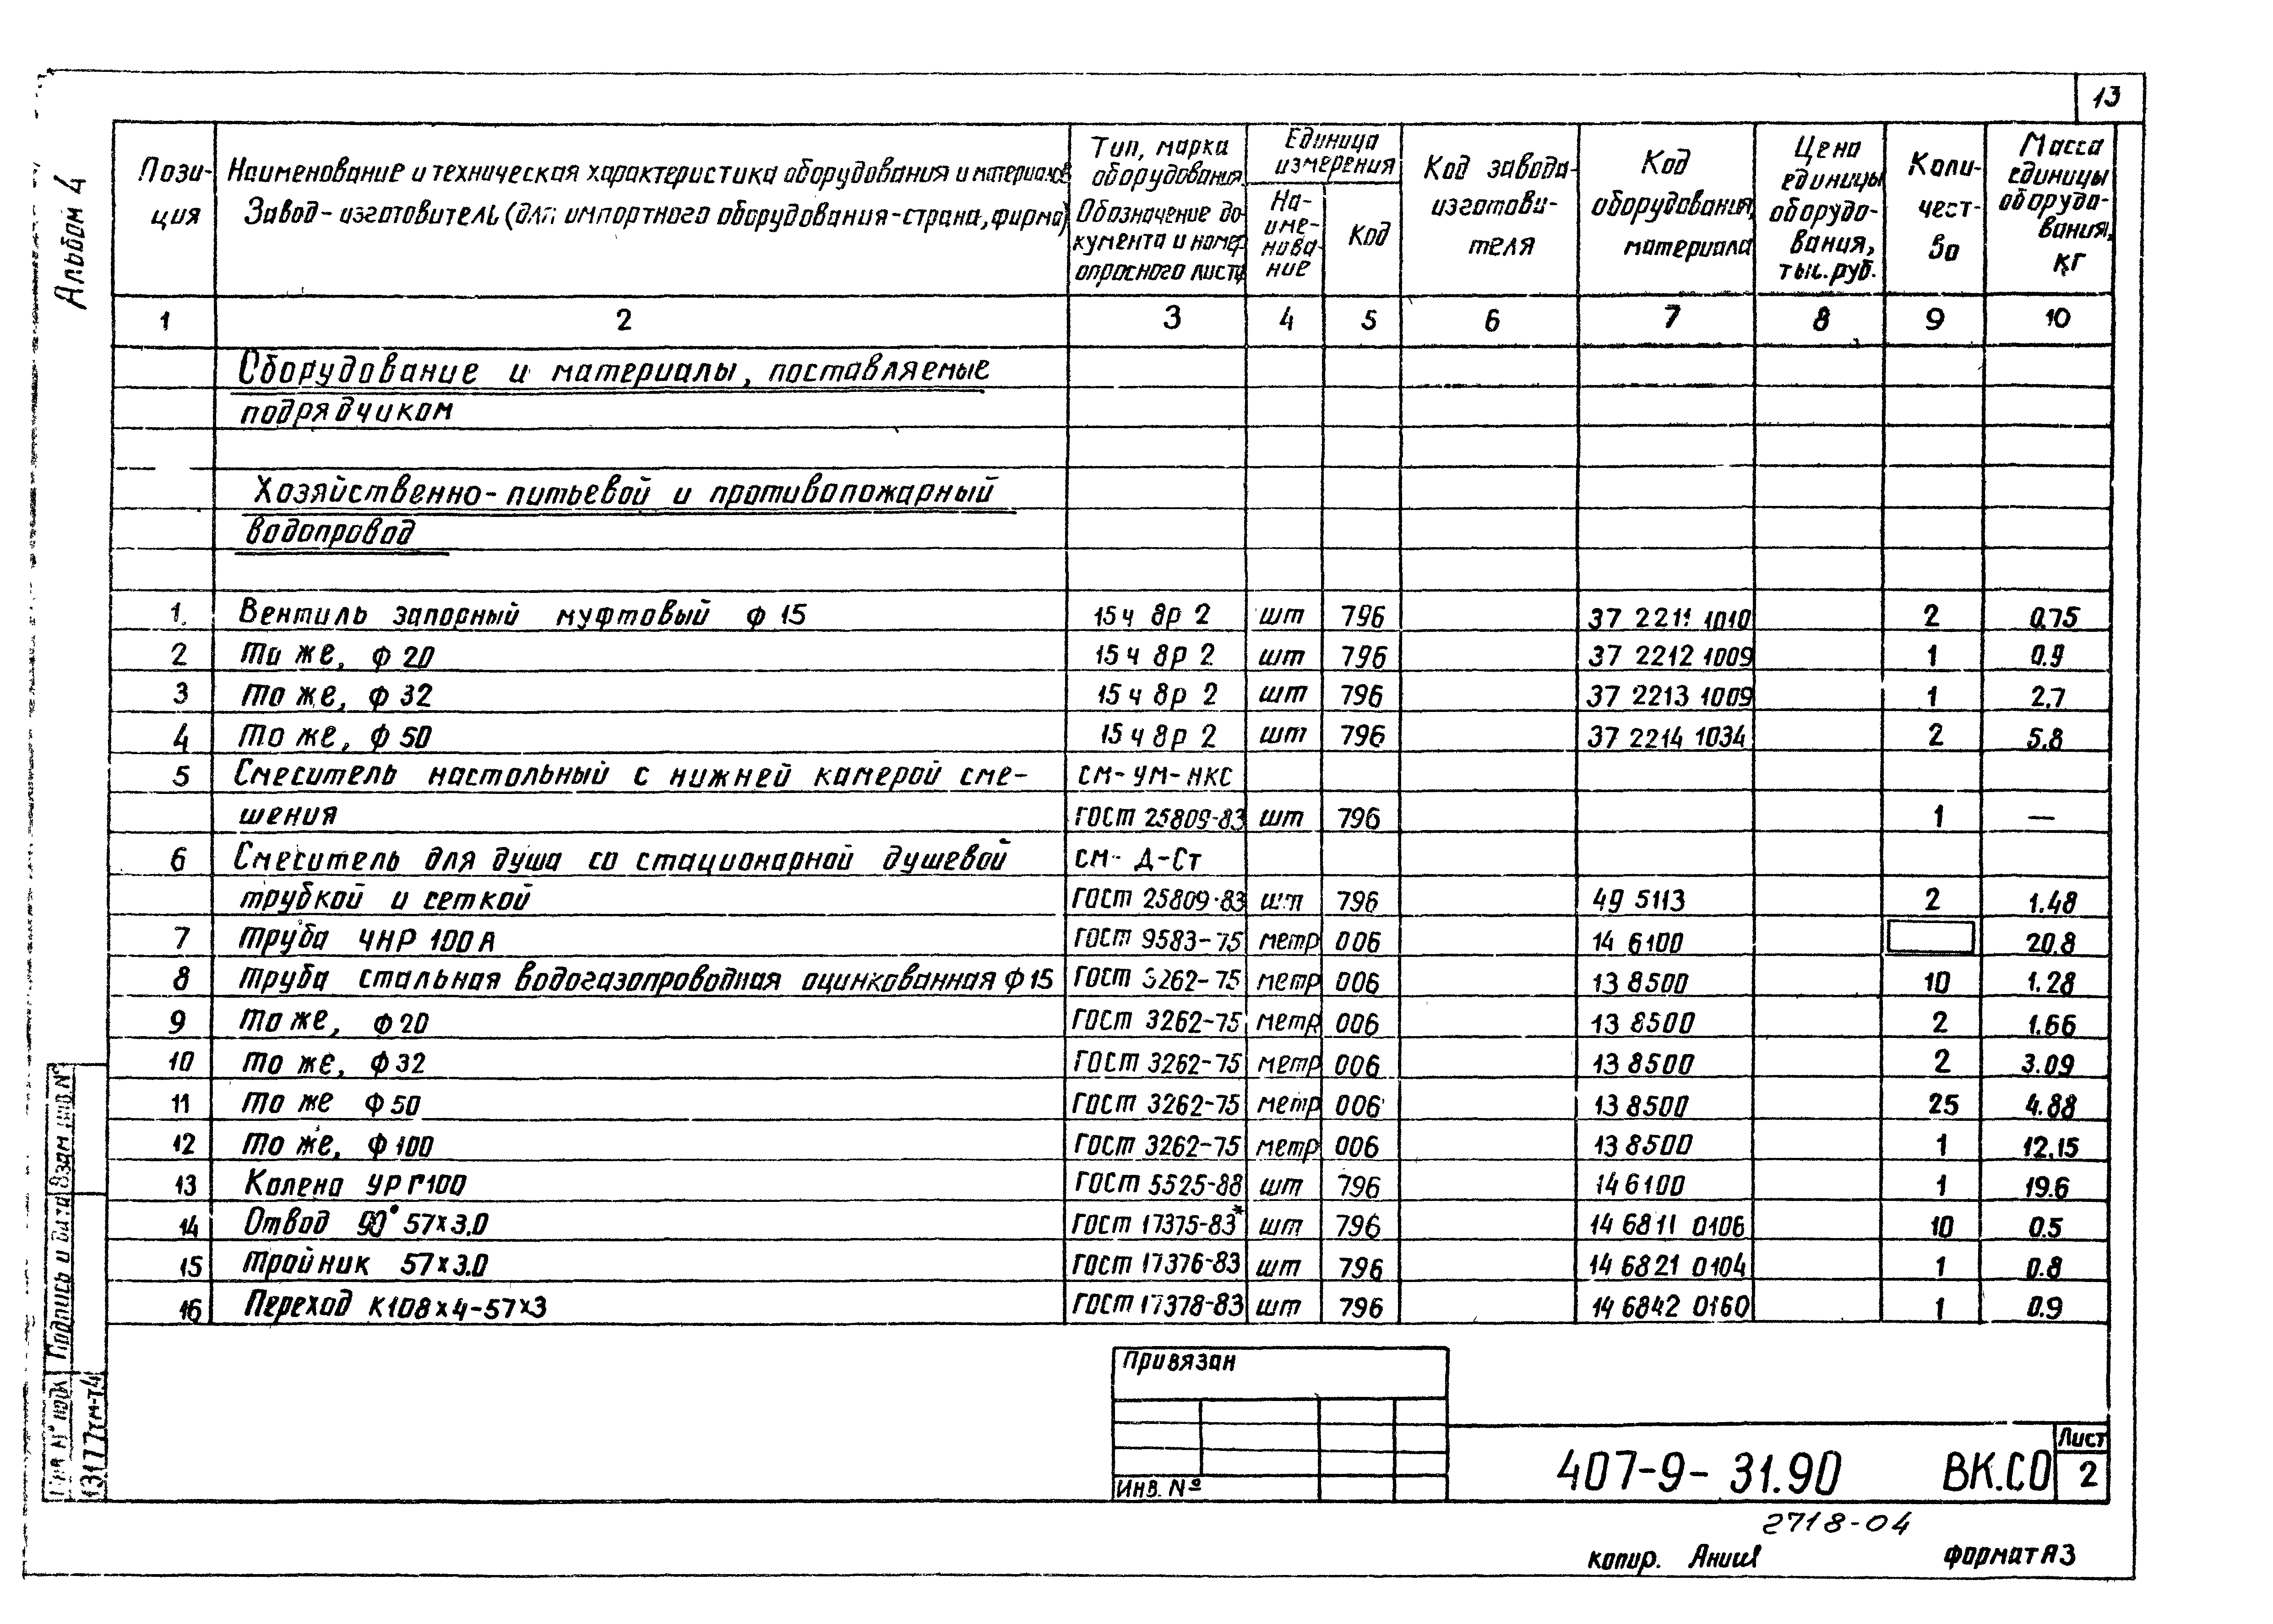 13
Альбом 4
Пози-ция
Наименование и техническая характеристика оборудования и материалов
Завод-изготовитель (для импортного оборудования-страна, фирма)
Тип, марка оборудования. Обозначение документа и номер опросного листа
Единица измерения
На-име-нова-ние
Код
Код завода-изготови-теля
Код оборудования, материала
Цена единицы оборудо-вания, тыс. руб.
Коли-чест-во
Масса единицы оборудо-вания, кг
1 2 3 4 5 6 7 8 9 10
Оборудование и материалы, поставляемые
подрядчиком
Хозяйственно-питьевой и противопожарный
водопровод
1. Вентиль запорный муфтовый ф 15 15ч 8р 2 шт 796 37 2211 1010 2 0.75
2 То же, ф 20 15ч 8р 2 шт 796 37 2212 1009 1 0.9
3 То же, ф 32 15ч 8р 2 шт 796 37 2213 1009 1 2.7
4 То же, ф 50 15ч 8р 2 шт 796 37 2214 1034 2 5.8
5 Смеситель настольный с нижней камерой сме- см-ум-нкс
шения ГОСТ 25809-83 шт 796 1 —
6 Смеситель для душа со стационарной душевой см-Д-Ст
трубкой и сеткой ГОСТ 25809-83 шт 796 49 5113 2 1.48
7 Труба ЧНР 100А ГОСТ 9583-75 метр 006 14 6100 20.8
8 Труба стальная водогазопроводная оцинкованная ф 15 ГОСТ 3262-75 метр 006 13 8500 10 1.28
9 То же, ф 20 ГОСТ 3262-75 метр 006 13 8500 2 1.66
10 То же, ф 32 ГОСТ 3262-75 метр 006 13 8500 2 3.09
11 То же ф 50 ГОСТ 3262-75 метр 006 13 8500 25 4.88
12 То же, ф 100 ГОСТ 3262-75 метр 006 13 8500 1 12.15
13 Колено УРГ100 ГОСТ 5525-88 шт 796 14 6100 1 19.6
14 Отвод 90° 57×3.0 ГОСТ 17375-83* шт 796 14 6811 0106 10 0.5
15 Тройник 57×3.0 ГОСТ 17376-83 шт 796 14 6821 0104 1 0.8
16 Переход К108×4-57×3 ГОСТ 17378-83 шт 796 14 6842 0160 1 0.9
Инв. № подл
Подпись и дата
Взам инв №
13177тм-т4
Привязан
Инв. №
407-9-31.90 ВК.СО
Лист
2
2718-04
копир. формат А3